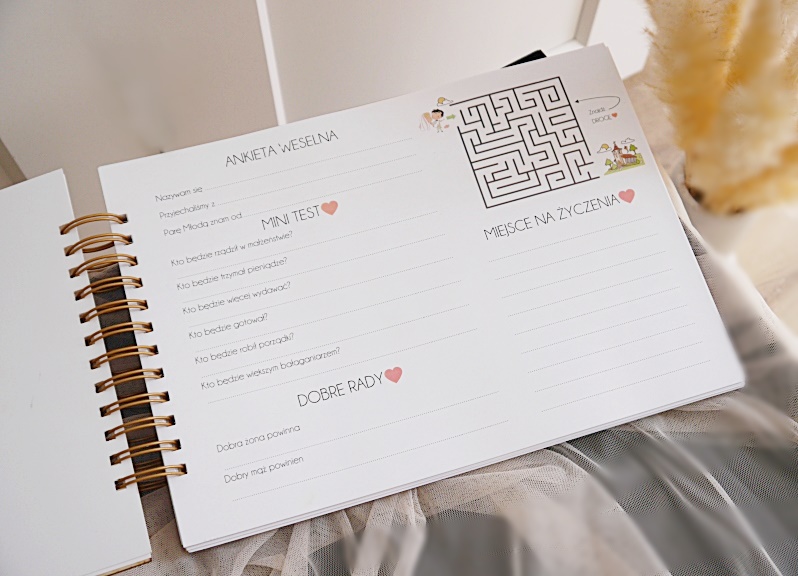 ANKIETA WESELNA
Nazywam się
Przyjechali/my z
Parę Młodą znam od
MINI TEST
Kto będzie rządził w małżeństwie?
Kto będzie trzymał pieniądze?
Kto będzie więcej wydawać?
Kto będzie gotował?
Kto będzie robił porządki?
Kto będzie większym bałaganiarzem?
DOBRE RADY
Dobra żona powinna
Dobry mąż powinien
Znajdź
DROGĘ
MIEJSCE NA ŻYCZENIA